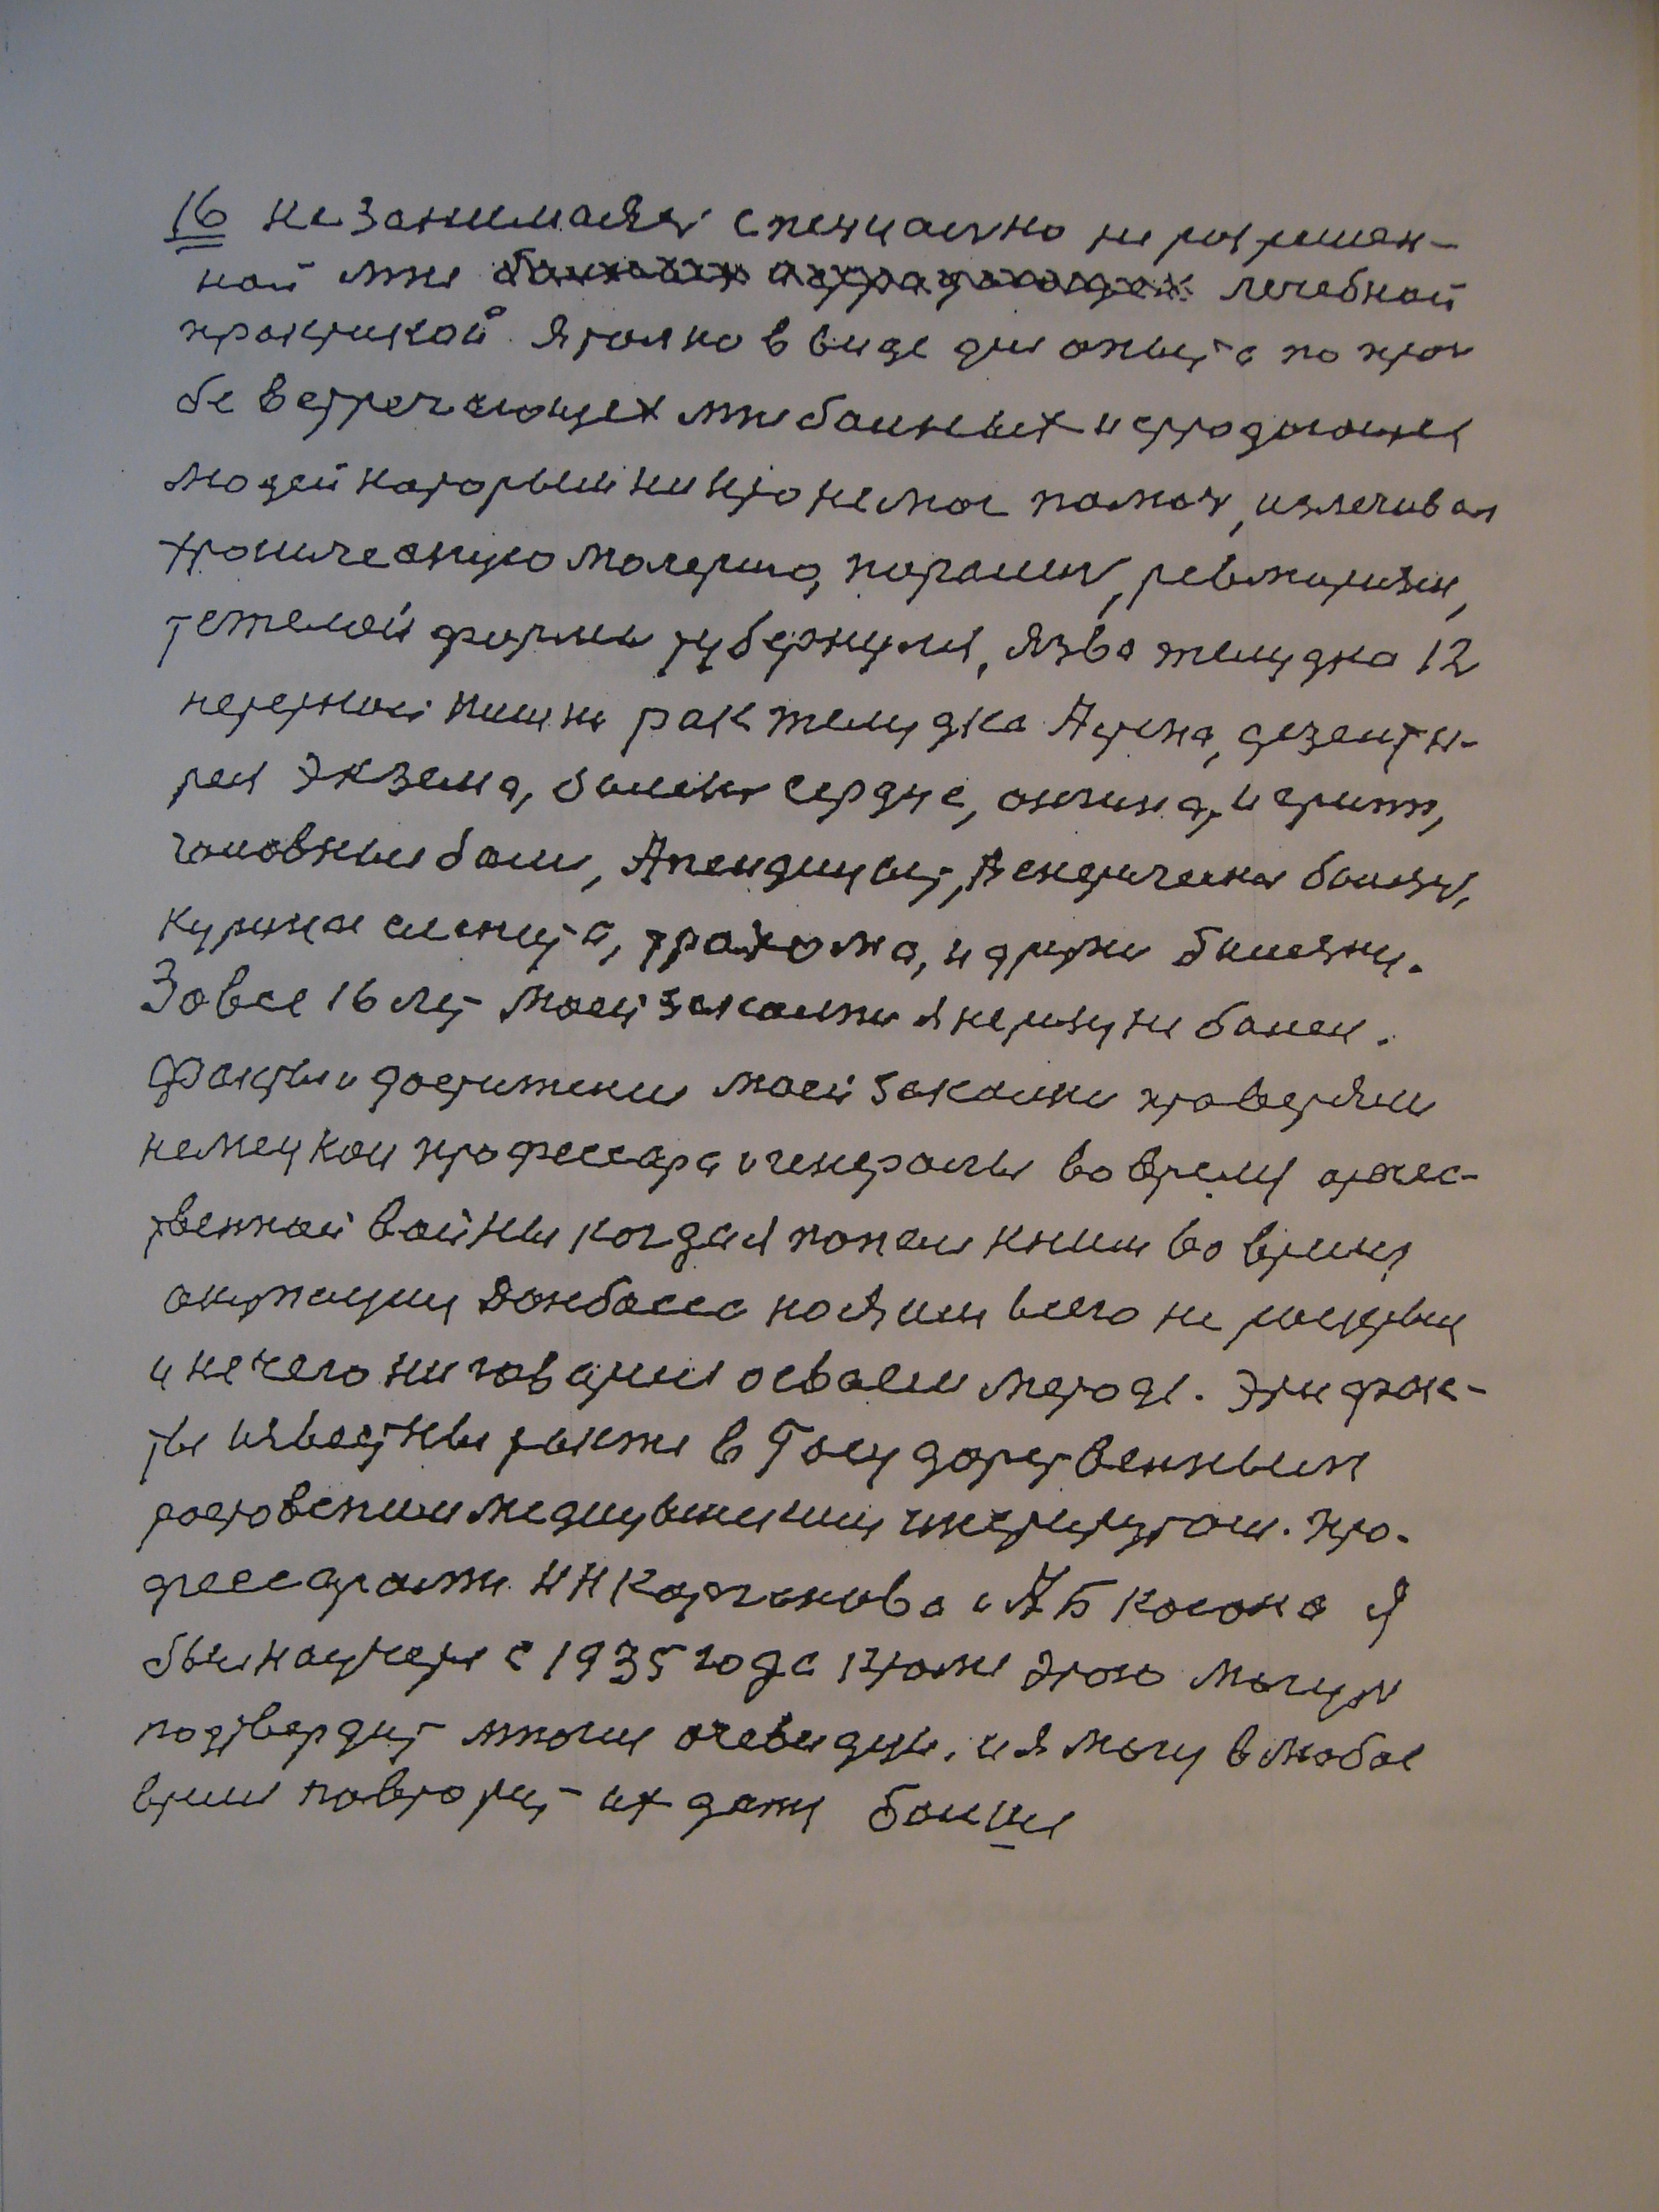 16 не занимаяся специално не разришен-
ной мне больных страдающех лечебной
практикой. Я толко в виде для опыта по прос
бе встречающех мне больных и страдающих
людей каторым ни кто не мог памоч, излечивал
хроническую малерию, паралич, ревматизм,
тежелой формы туберкулез, язва желудка 12
перстной кишки рак желудка Астма, дезенте-
рея Экзема, болезни сердце, ангина, и грипп,
головные боли, Апендицыт, Венерические болезни,
куриная слепота, трахома, и други болезни.
За все 16 лет моей закалки я не разу не болел.
Факты и достижения моей закалки проверяли
немецкои професcара и генералы во время отчес-
твенной войны когда я попал к ним во время
окупации Донбасса но я им всего не
и не чего ни говарил о своем методе. Эти фак-
ты известны также в Государственным
ростовским медицынским институтам. Про-
фессарами Н Н Корганова и А Б Когана Я
был на учете с 1935 года Кроме этого могут
подтвердит многие очевидцы. и я могу в любое
время повторит их даже больше